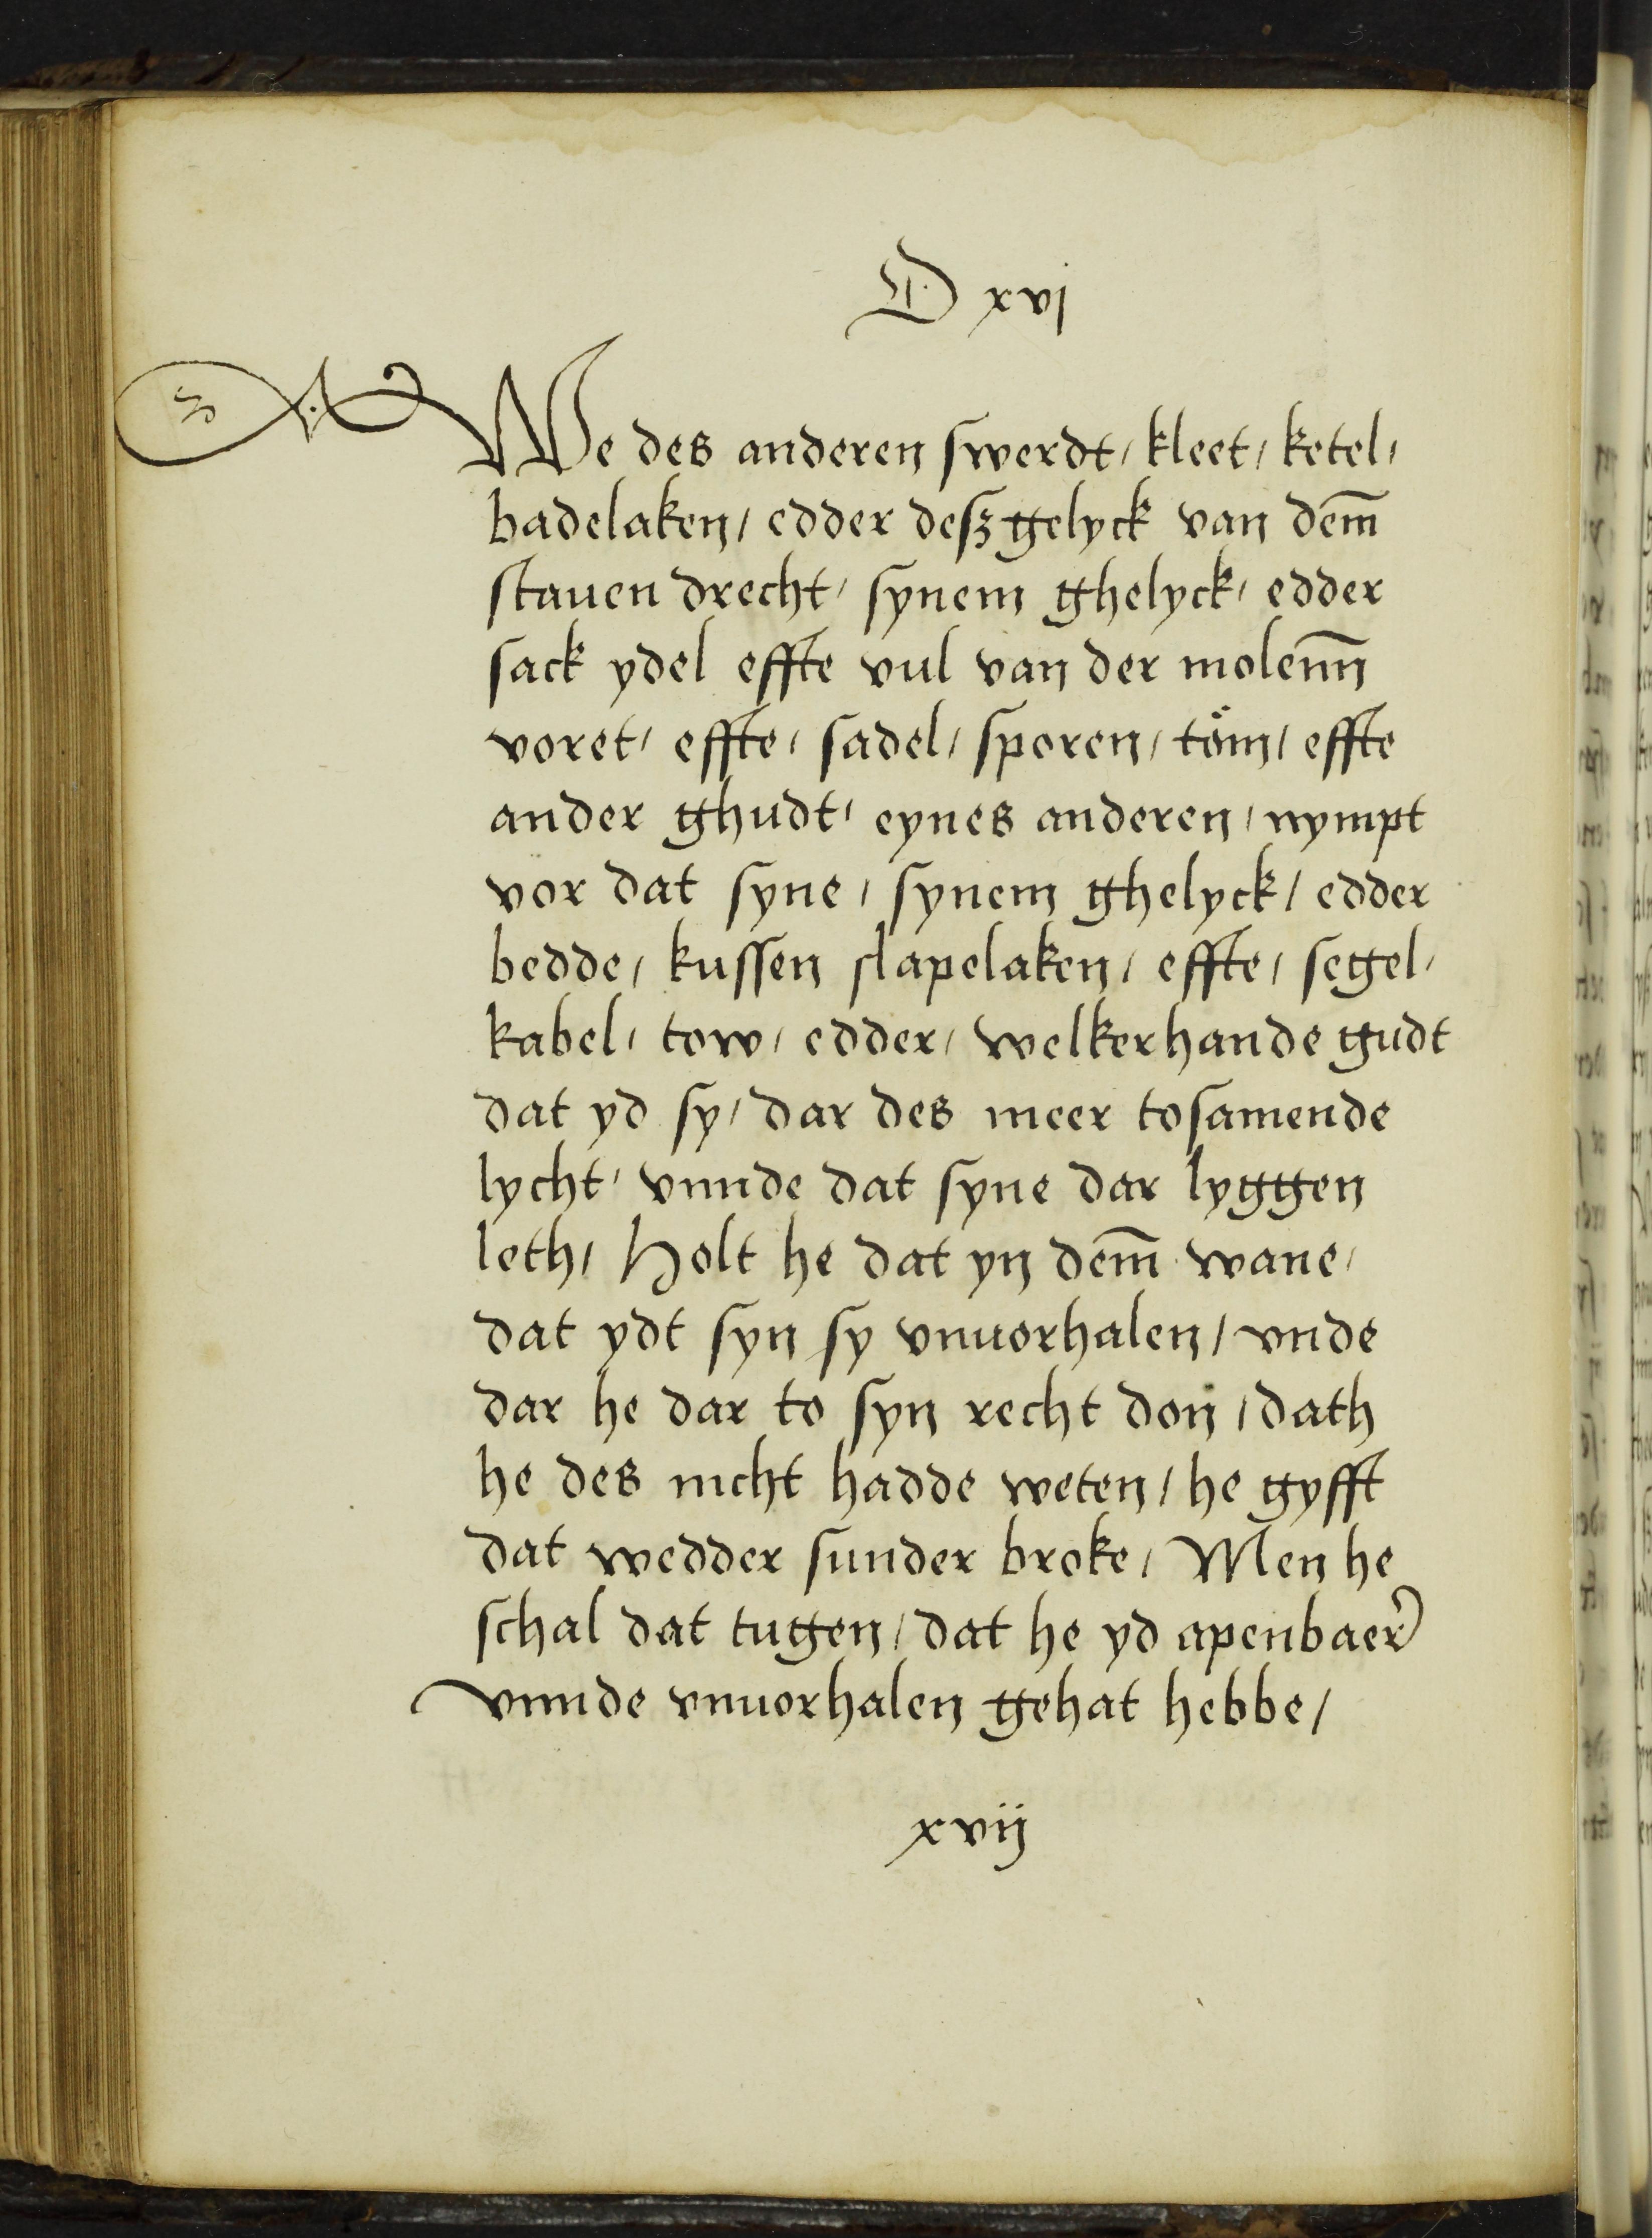 D xvj
We des anderen swerdt / kleet / ketel /
badelaken / edder deſz gelyck van dem̄
stauen drecht / synem ghelyck / edder
sack ydel effte vul van der molenn̄
voret / effte / sadel / sporen / töm / effte
ander ghudt / eynes anderen / nympt
vor dat syne / synem ghelyck / edder
bedde / kussen slapelaken / effte / segel /
kabel / tow / edder / welkerhande gudt
dat yd sy / dar des meer tosamende
lycht / vnnde dat syne dar lyggen
leth / Holt he dat yn dem̄ wane /
dat ydt syn sy vnuorhalen / vnde
dar he dar to syn recht don / dath
he des nicht hadde weten / he gyfft
dat wedder sunder broke / Men he
schal dat tugen / dat he yd apenbaer
vnnde vnuorhalen gehat hebbe /
xvij